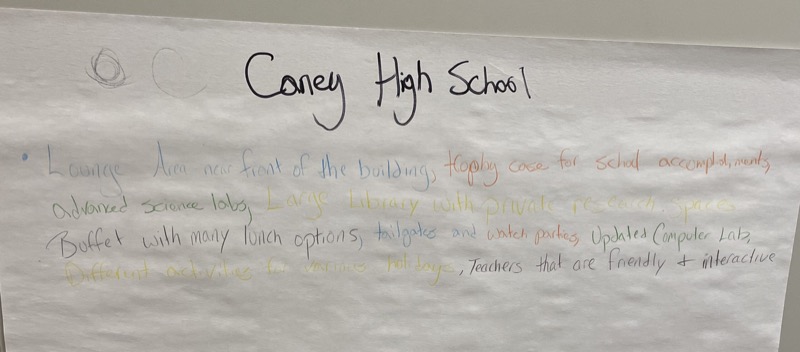 Caney High School
• Lounge Area near front of the building, trophy case for school accomplishments,
advanced science labs, Large Library with private research spaces
Buffet with many lunch options, tailgates and watch parties, Updated Computer Lab,
Different activities for various holidays, Teachers that are friendly + interactive